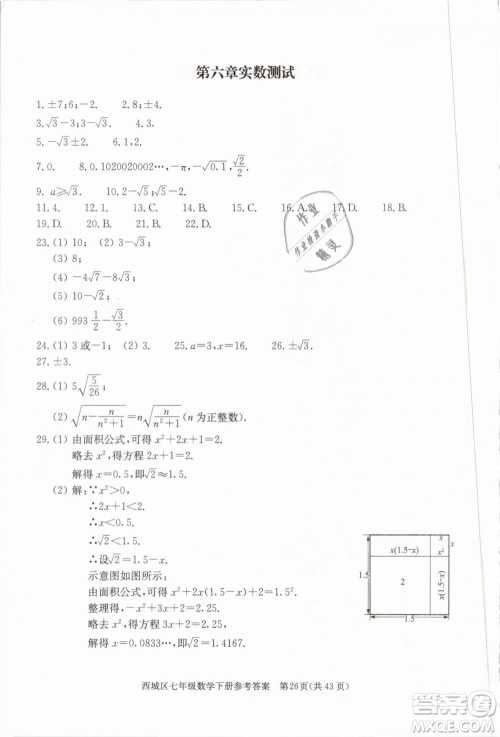 第六章实数测试
1. ±7；6；－2.　2.8；4.
3. √3－3；－√3.　4.
5. －√3 ±√2.　6.1,2.
7.0.　8.0.1020020002…，－π，－√0.1，√2/2.
9. a≥√3.　10.2－√5；√5－2.
11.4.　12.1.　13.D.　14.B.　15.C.　16.A.　17.D.　18.B.
19.D.　20.D.　21.C.　22.B.
23.(1) 10；　(2) 3－√3；
(3) 8；
(4) －4√7－8√3；
(5) 0；
(6) 993 1/2－√3/2.
24.(1) 3或－1；　(2) 3.　25.a＝3，x＝16.　26.±√3.
27.±3.
28.(1) 5√(5/26)
(2) √(n－n/(n²＋1))＝n√(n/(n²＋1))(n为正整数).
29.(1) 由面积公式，可得 x²＋2x＋1＝2.
略去 x²，得方程 2x＋1＝2.
解得 x＝0.5，即√2≈1.5.
(2) 解：∵x²＞0，
∴2x＜1.
∴x＜0.5.
∴√2＜1.5.
∴设√2＝1.5－x.
示意图如图所示：
由面积公式，可得 x²＋2x(1.5－x)＋2＝1.5².
整理得，－x²＋3x＋2＝2.25.
略去 x²，得方程 3x＋2＝2.25.
解得 x＝0.0833…，即√2≈1.4167.
x
x(1.5－x)
x²
1.5
2
x(1.5－x)
1.5
作业
作业检查小助手
精灵
西城区七年级数学下册参考答案　第26页(共43页)